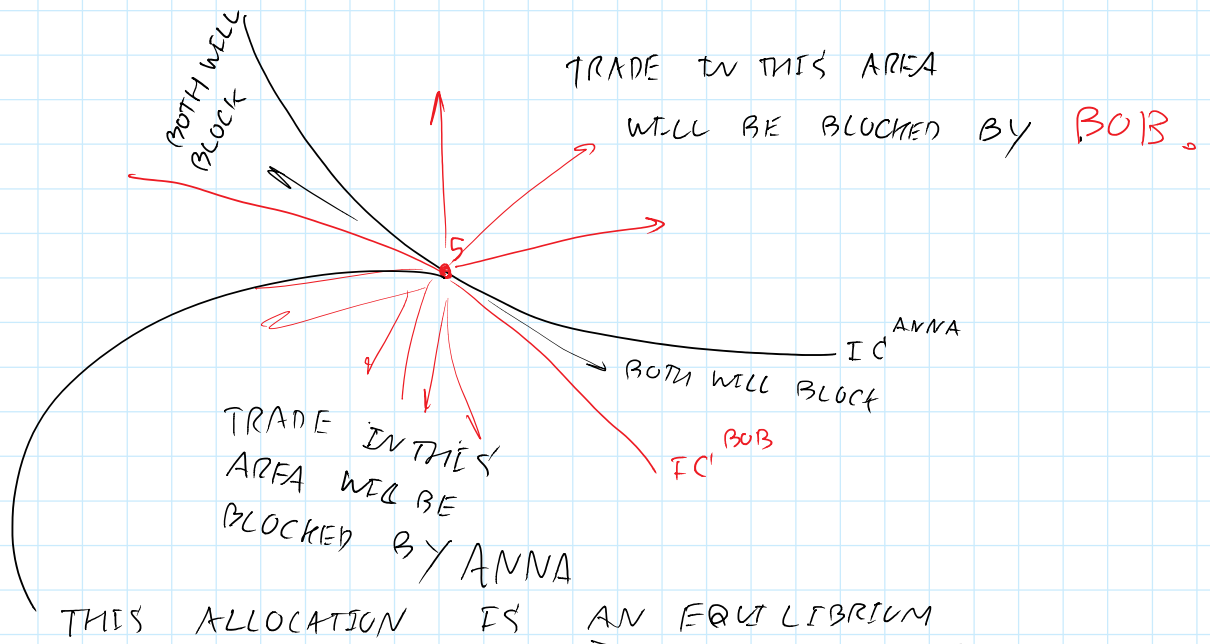 BOTH WILL
BLOCK
TRADE IN THIS AREA
WILL BE BLOCKED BY BOB.
5
IC ANNA
BOTH WILL BLOCK
IC BOB
TRADE IN THIS
AREA WILL BE
BLOCKED BY ANNA
THIS ALLOCATION IS AN EQUILIBRIUM